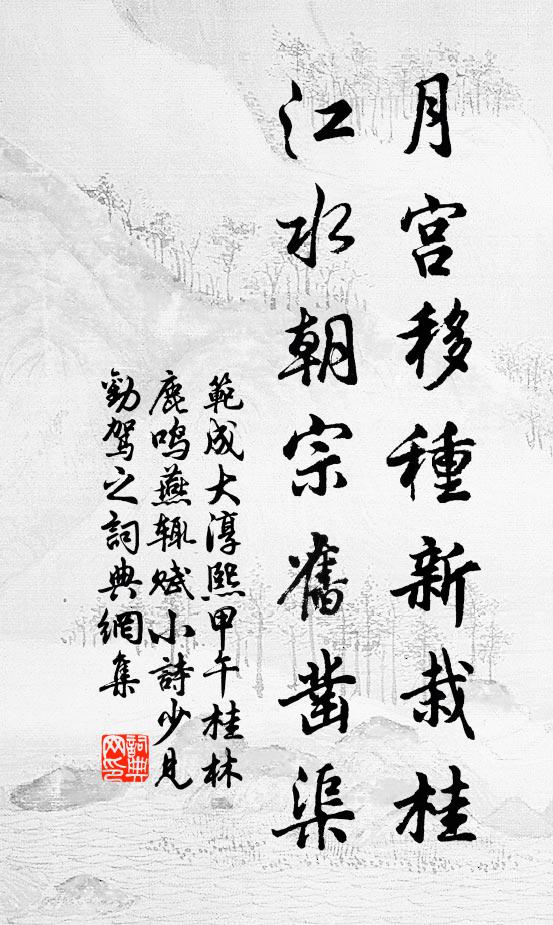 月宫移種新栽桂
江水朝宗舊鑿渠
範成大淳熙甲午桂林
鹿鳴燕輒賦小詩少見
勸駕之詞典網集
詞典网印